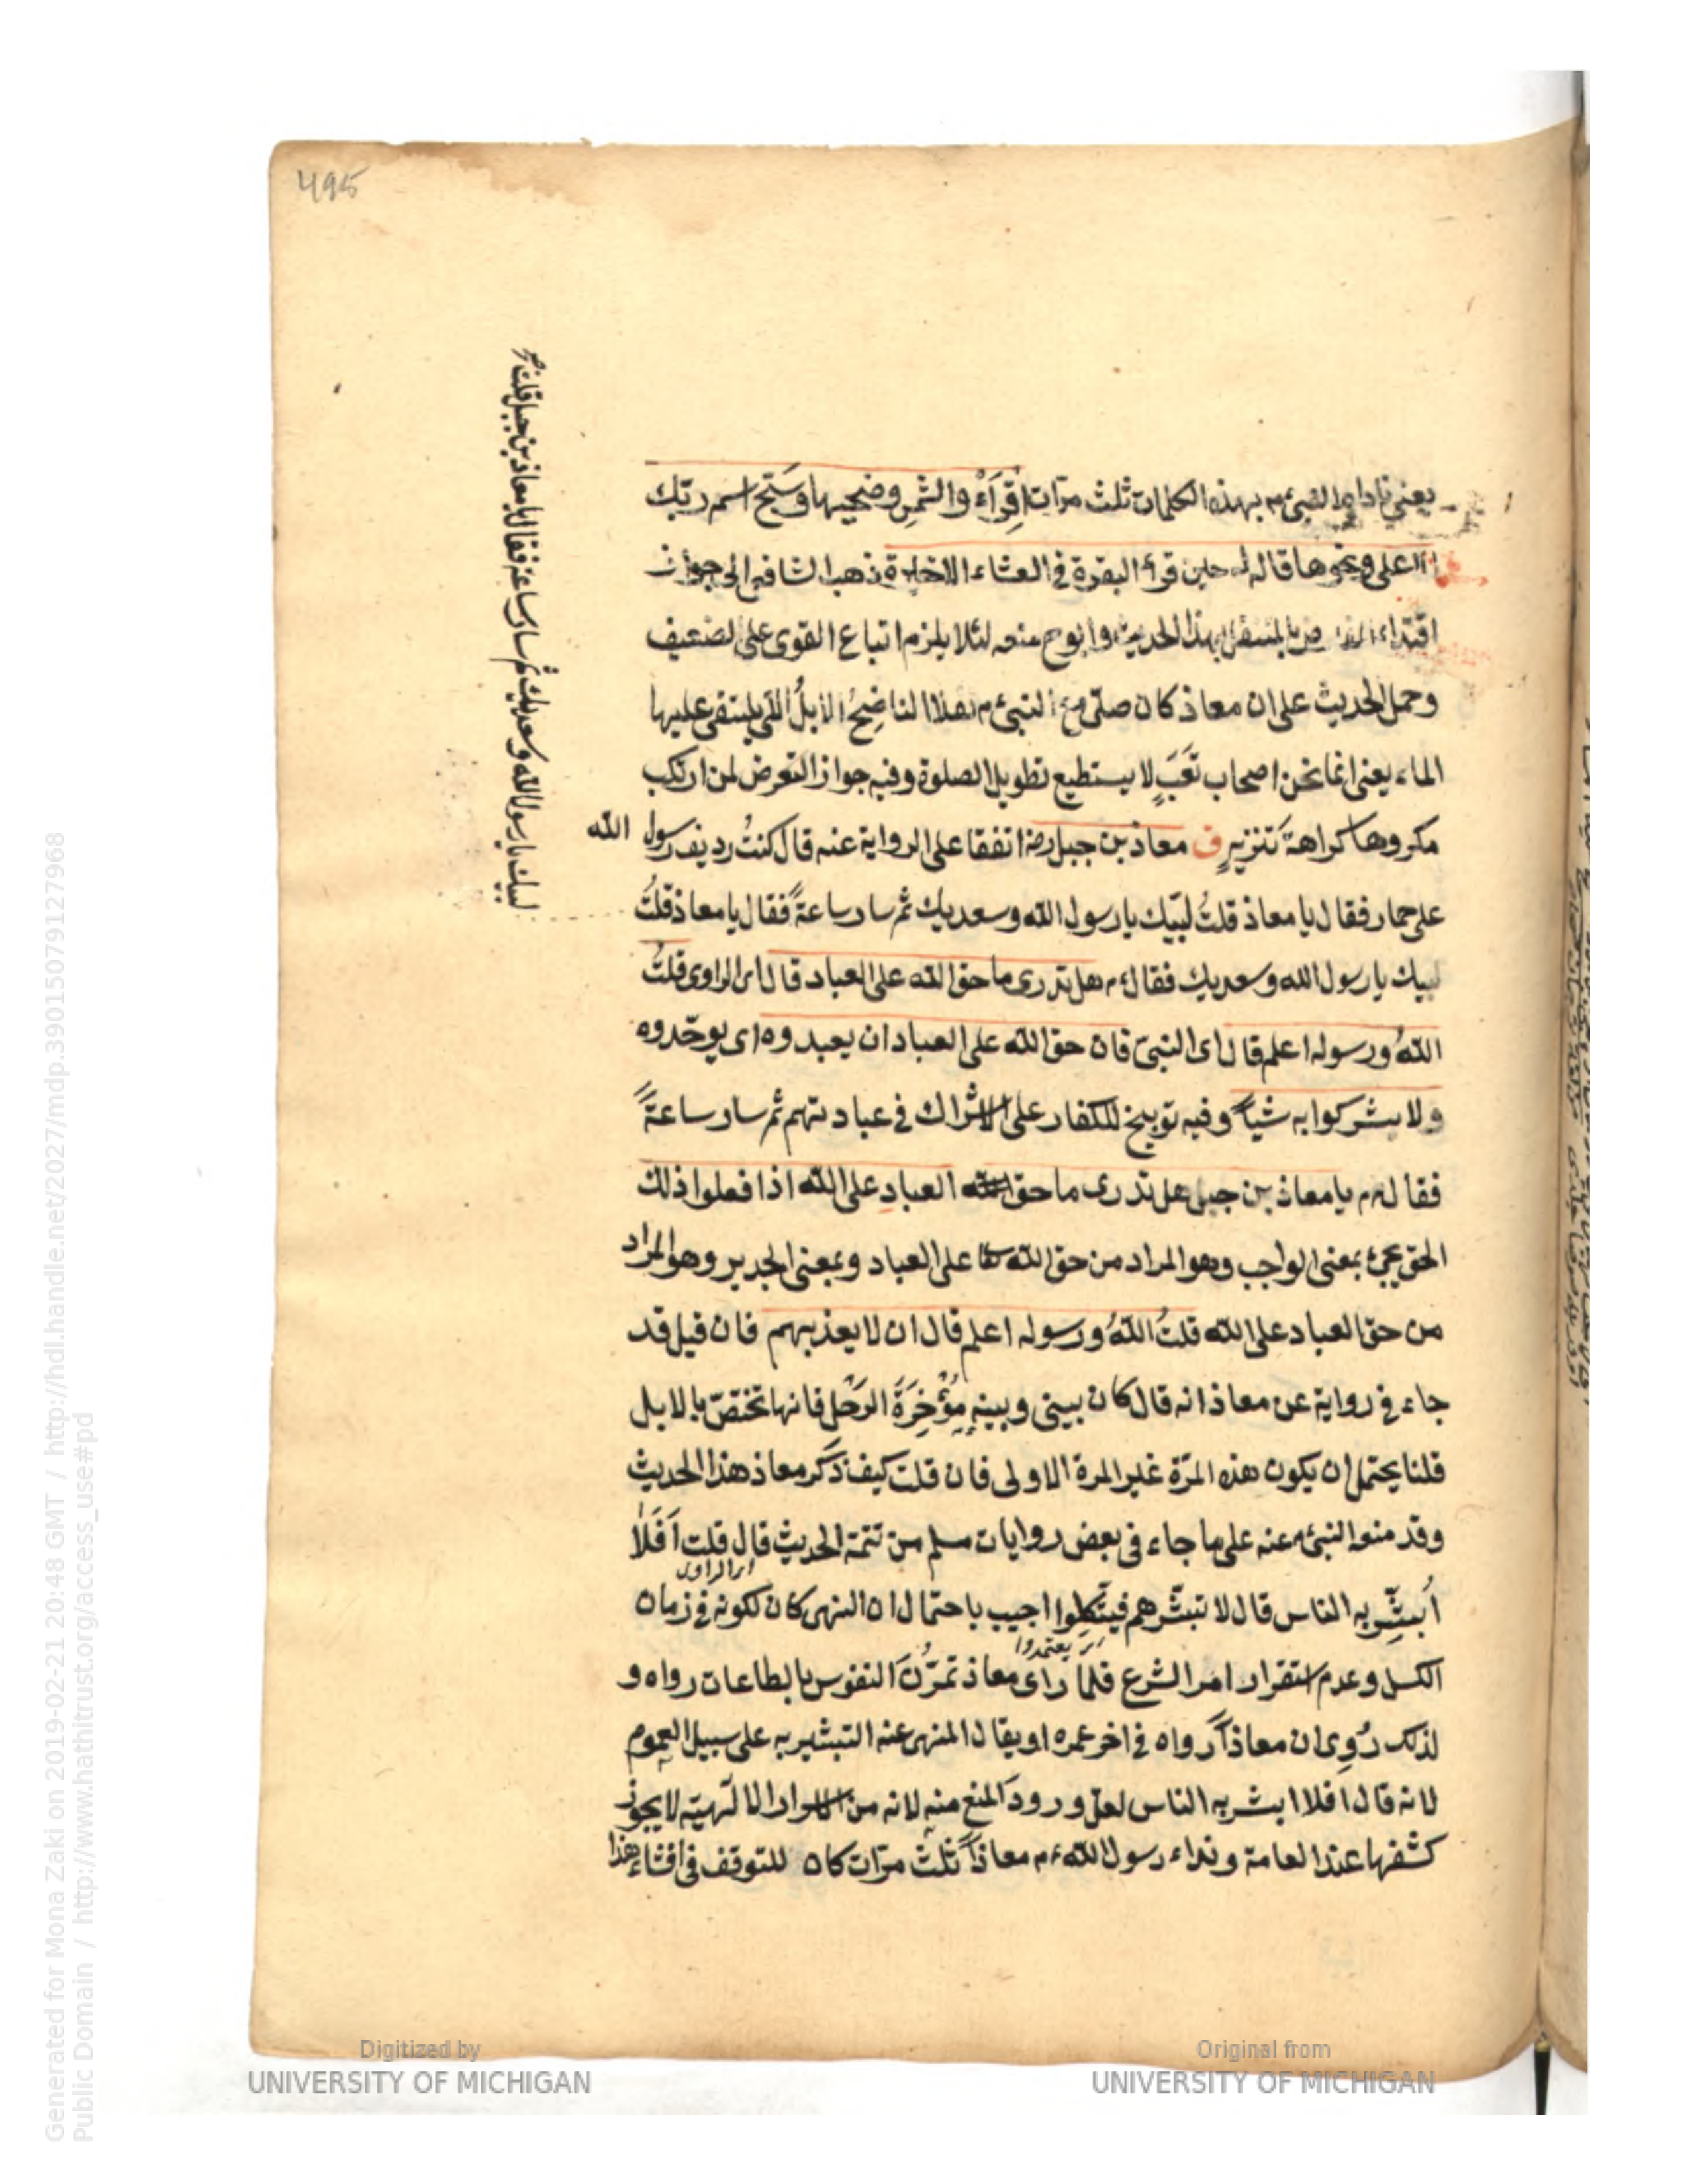 495
يعني ناداه النبي ءم بهذه الكلمات ثلث مرّات اقْرَأْ والشمسِ وضحيها وسَبّح اسم ربّك
الاعلى ونحوها قاله له حين قرأ البقرة في العشاء الاخيرة ذهب الشافعي الى جواز
اقتداء المفترض بالمتنفل بهذا الحديث وابو ح منعه لئلا يلزم اتباع القوى على الضعيف
وحمل الحديث على ان معاذ كان صلّى مع النبي ءم نفلا الناضِحُ الابلُ التي يستقى عليها
الماء يعنى انما نحن اصحاب تَعَبٍ لا يستطيع تطويل الصلوة وفيه جواز التعرض لمن ارتكب
مكروها كراهة تَنْزيهٍ ق معاذ بن جبل رضه اتفقا على الرواية عنه قال كنتُ رديف رسول الله
على حمار فقال يا معاذ قلتُ لبّيك يا رسول الله وسعديك ثم سار ساعةً فقال يا معاذ قلتُ
لبيك يا رسول الله وسعديك فقال ءم هل تدرى ما حق الله على العباد قال اى الراوى قلتُ
اللهُ ورسوله اعلم قال اى النبىّ فان حق الله على العباد ان يعبدوه اى يوحّدوه
ولا يشركوا به شياً وفيه توبيخ للكفار على الاشراك في عبادتهم ثم سار ساعةً
فقال ءم يا معاذ بن جبل هل تدرى ما حق العبادِ على الله اذا فعلوا ذلك
الحق يجئ بمعنى الواجب وهو المراد من حق الله تعا على العباد وبمعنى الجدير وهو المراد
من حق العباد على الله قلتُ اللهُ ورسوله اعلم قال ان لا يعذبهم فان قيل قد
جاء في رواية عن معاذ انه قال كان بينى وبينه مُؤْخِرَةُ الرَحْل فانها تختصّ بالابل
قلنا يحتمل ان يكون هذه المرّة غير المرة الاولى فان قلت كيف ذكر معاذ هذا الحديث
وقد منعه النبي ءم عنه على ما جاء فى بعض روايات مسلم من تتمة الحديث قال قلت اَفَلاَ
اى الراوى
اُبشِّر به الناس قال لا تبشّرهم فيتّكِلوا اجيب باحتمال ان النهى كان لكونه في زمان
يعتمدوا
الكسل وعدم استقرار امر الشرع فلمّا رأى معاذ تمرُّنَ النفوس بالطاعات رواه و
لذلك رُوِى ان معاذاً رواه في اخر عمره او يقال المنهى عنه التبشير به على سبيل العموم
لانه قال افلا ابشر به الناس لعل ورودَ المنع منه لانه من الاسرار الالهيّة لا يجوز
كشفها عند العامة ونداء رسول الله ءم معاذاً ثلث مرّات كان للتوقف في افشاء هذا
لبيك يا رسول الله وسعديك ثم سار ساعة فقال يا معاذ بن جبل قلت
Digitized by
UNIVERSITY OF MICHIGAN
Original from
UNIVERSITY OF MICHIGAN
Generated for Mona Zaki on 2019-02-21 20:48 GMT / http://hdl.handle.net/2027/mdp.39015079127968
Public Domain / http://www.hathitrust.org/access_use#pd